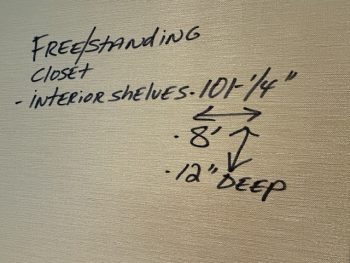 FREE/STANDING
CLOSET
- INTERIOR SHELVES - 101-1/4"
- 8'
- 12" DEEP